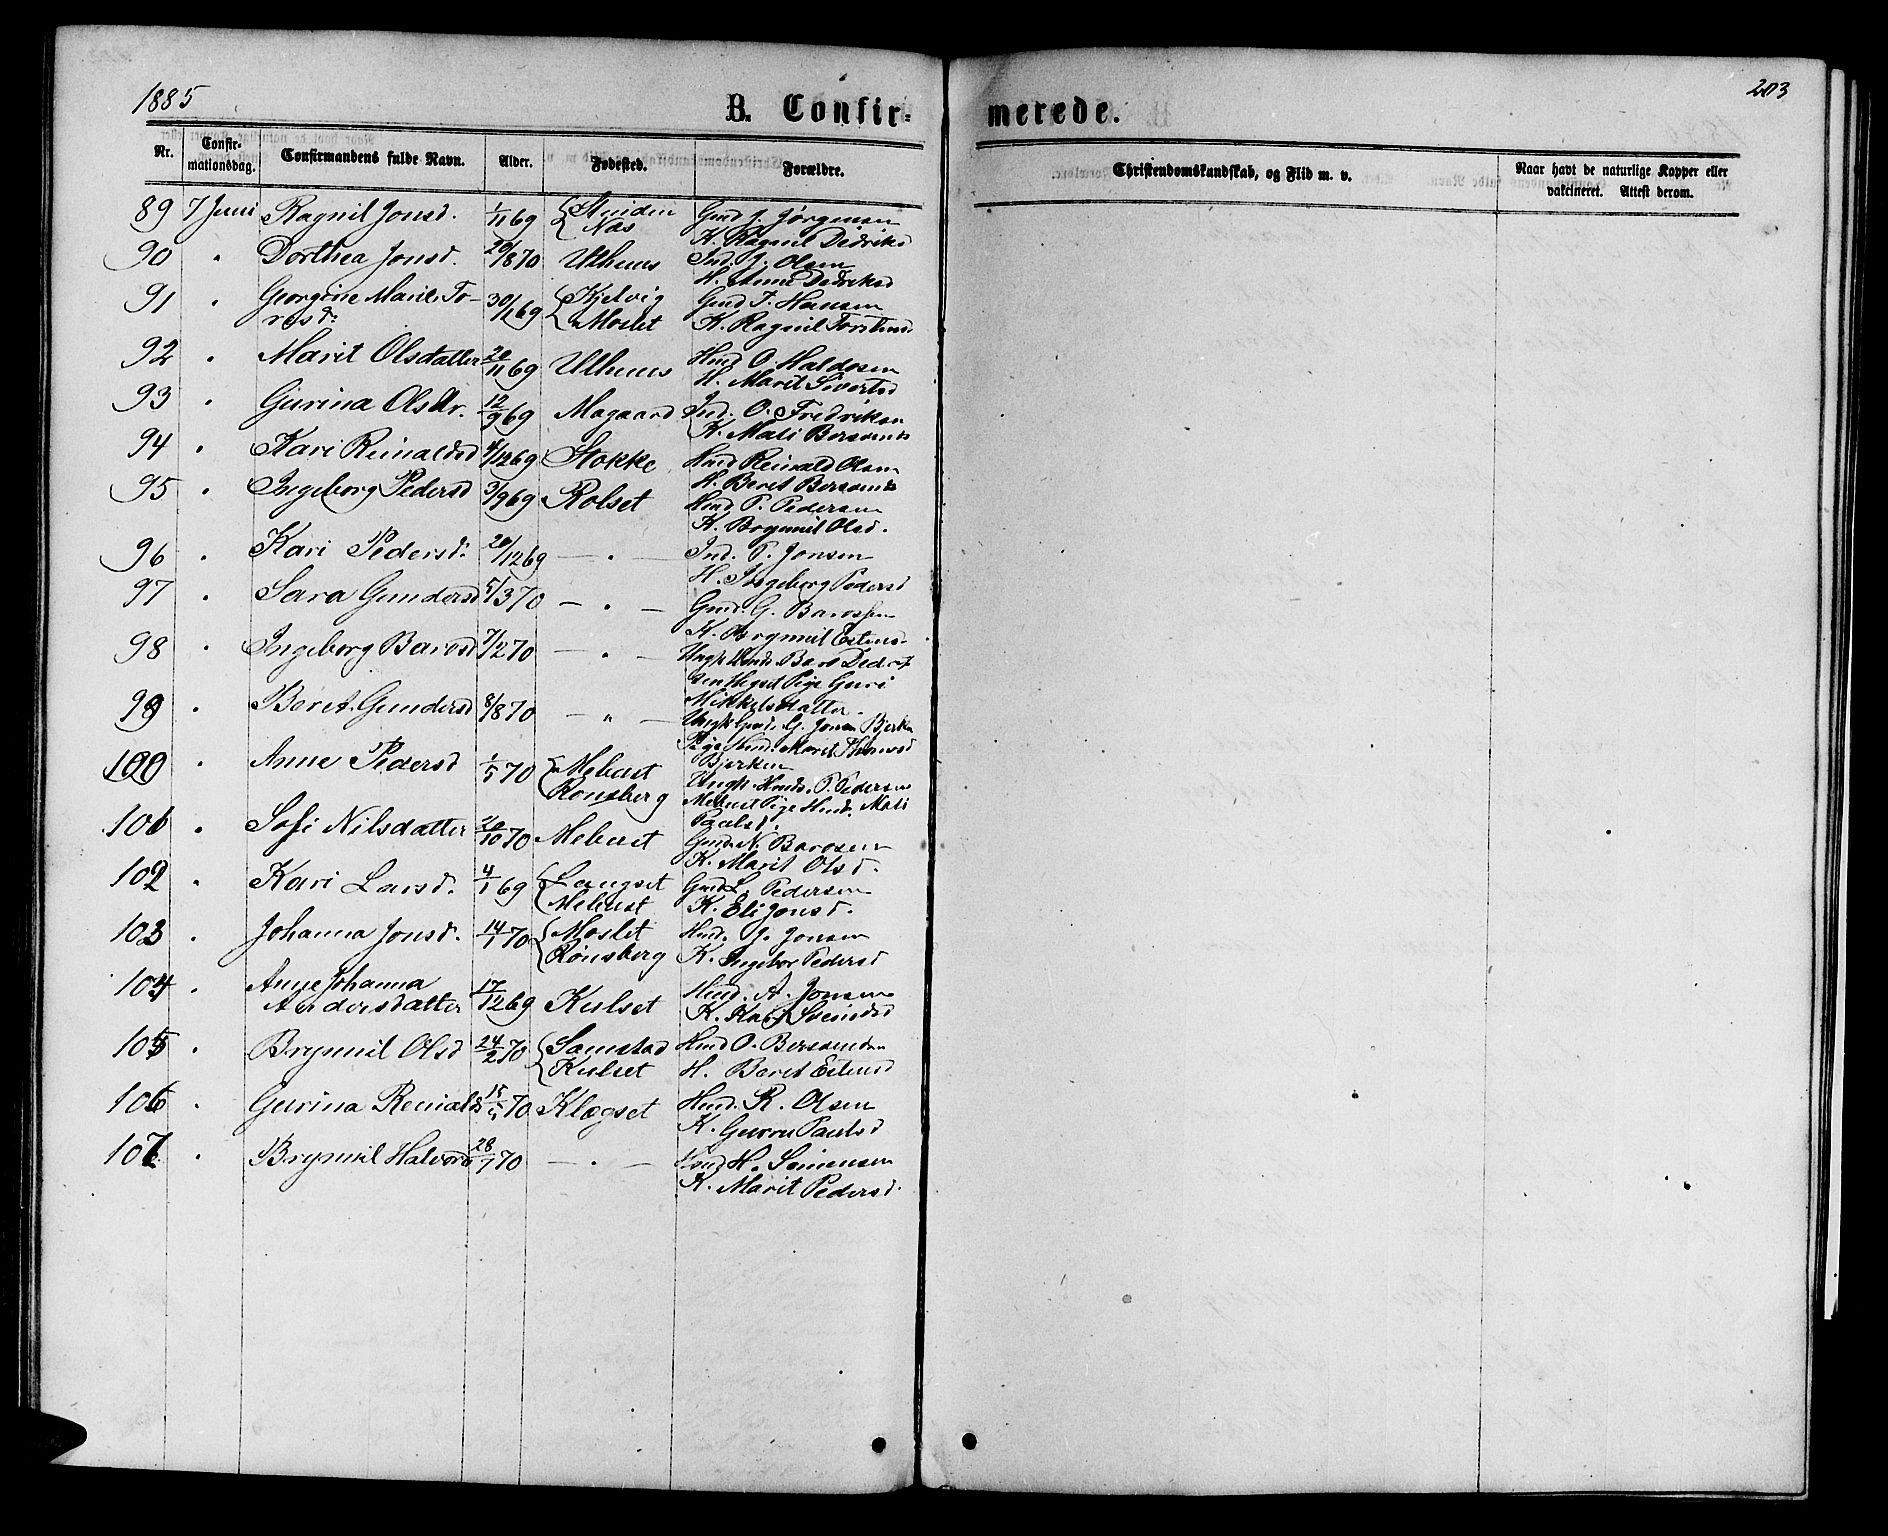 1885
203
B. Confir-
merede.
Nr. Confir-mationsdag. Confirmandens fulde Navn. Alder. Fødested. Forældre.
Christendomskundskab, og Flid m. v.
Naar havt de naturlige Kopper eller vakcineret. Attest derom.
89 7 Juni Ragnil Jonsd. 1/11 69 Næs Gmd J. Jørgensen
K. Ragnil Didriksd
90 " Dorthea Jonsd. 20/8 70 Utheus Ind. J. Olsen
H. Anne Didriksd
91 " Georgine Marie To- 30/1 69 Kjelvig Gmd T. Hansen
resd. Moslet K. Ragnil Torstensd
92 " Marit Olsdatter 20/11 69 Utheus Hmd O. Haldosen
H. Marit Sivertsd
93 " Gurina Olsdtr. 12/9 69 Magaard Ind. O. Fredriksen
K. Mali Bersvends
94 " Kari Reinaldsd 4/12 69 Stokke Hmd Reinald Olsen
H. Beret Bersvends
95 " Ingeborg Pedersd 3/9 69 Rolset Hmd P. Pedersen
K. Brynnil Olsd.
96 " Kari Pedersd. 20/12 69 — " — Ind. P. Jonsen
H. Ingeborg Pedersd
97 " Sara Gundersd 5/3 70 — " — Gmd. G. Barossen
K. Brynnil Estens
98 " Ingeborg Barosd 7/2 70 — " — Ungk Hmds. Baro Didrik
sen Pige Guri
Mikkelsdatter
99 " Beret Gundersd 8/8 70 — " — Ungk Gmds. G. Jonsen Bjerken
Pige Hmd. Marit
Bjerken
100 " Anne Pedersd 1/5 70 Mebust Ungk. Hmds. P. Pedersen
Rønsberg Mebust Pige Hmds. Mali
Paulsd.
101 " Sofi Nilsdatter 20/10 70 Mebust Gmd. N. Barosen
K. Marit Olsd.
102 " Kari Larsd. 4/1 69 Langset Gmd L. Pedersen
Mebust K. Eli Jonsd.
103 " Johanna Jonsd. 14/1 70 Moslet Hmd. J. Jonsen
Rønsberg K. Ingebor Pedersd
104 " Anne Johanna 17/12 69 Kulset Hmd. A. Jonsen
Andersdatter K. Kari Svendsd
105 " Brynnil Olsd 24/2 70 Samstad Hmd O. Bersvendsen
Kulset H. Beret Estensd
106 " Gurina Reinalds 15/5 70 Klægset Hmd. R. Olsen
K. Guru Paulsd
107 " Brynnil Halvord 28/7 70 — " — H. Simensen
K. Marit Pedersd.